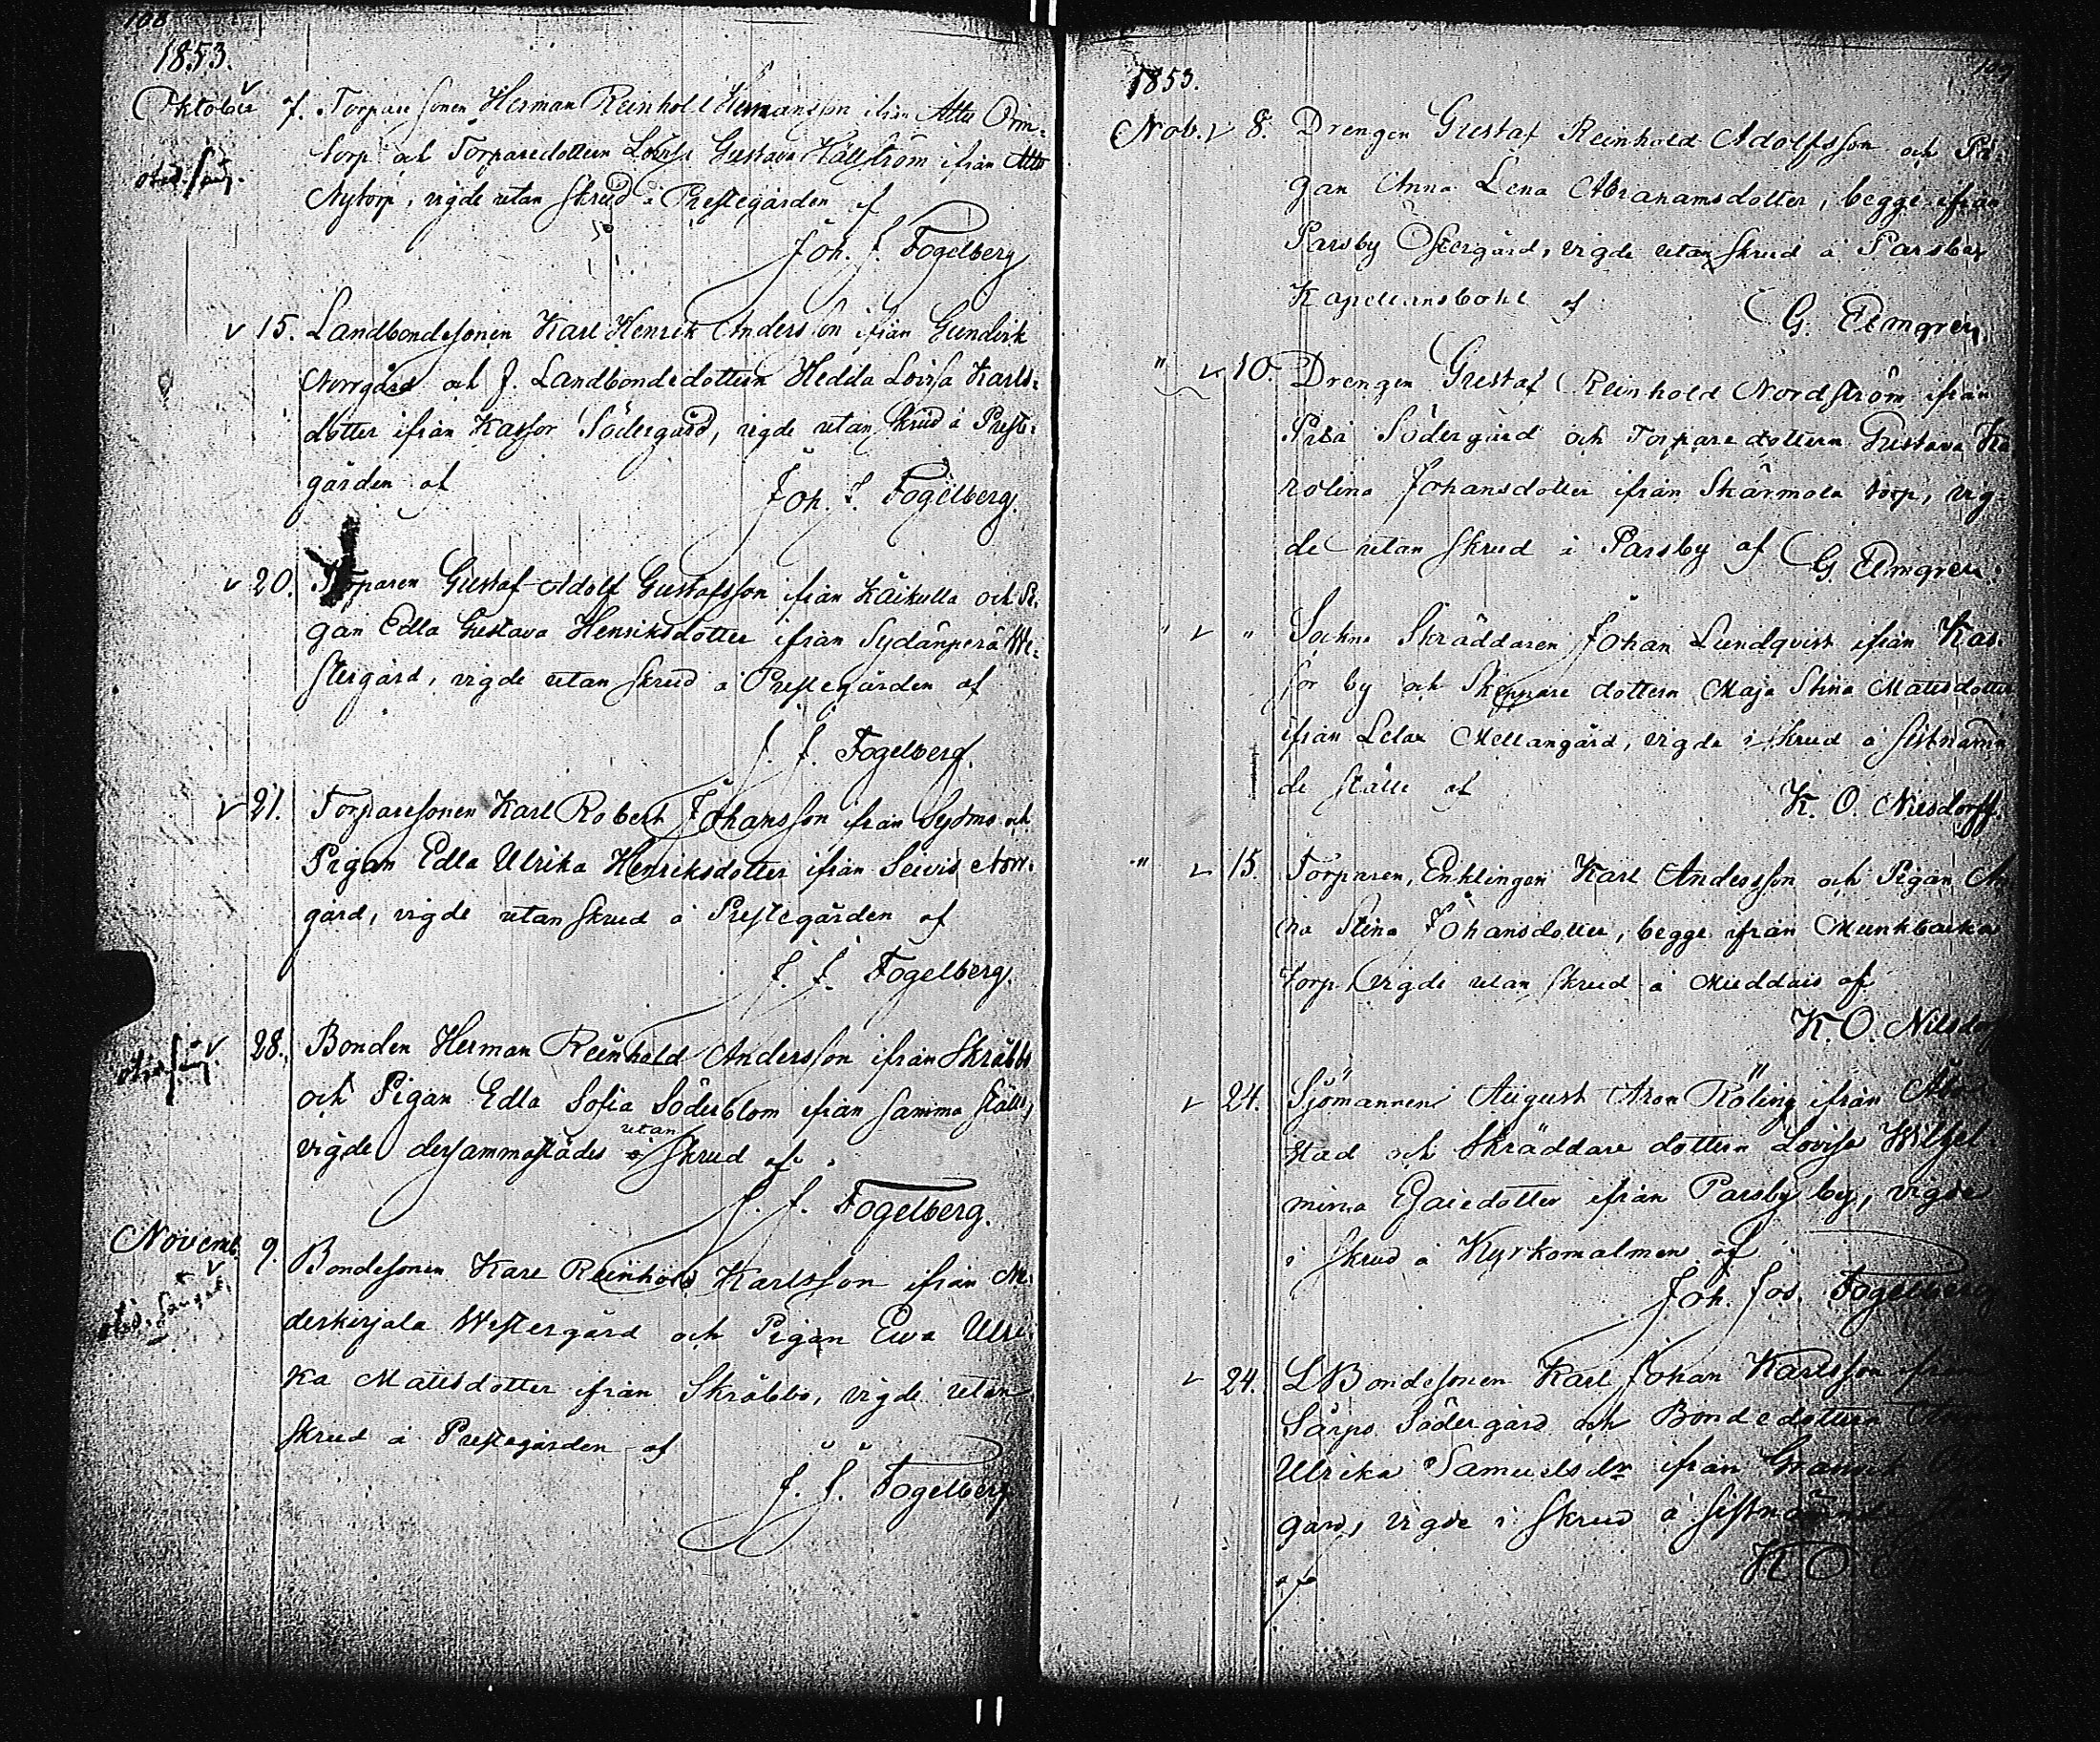 108
1853.
Oktober 7. Torparesonen Herman Reinhold Hermansson ifrån Attu Orm-
torp och Torparedottern Lovisa Gustava Hällström ifrån Attu
Nytorp, vigde utan skrud å Prestegården af
Joh. J. Fogelberg
15. Landbondesonen Karl Henrik Andersson ifrån Gundvik
Norrgård och f. Landbondedottern Hedda Lovisa Karls-
dotter ifrån Kassor Södergård, vigde utan skrud å Preste-
gården af
Joh. J. Fogelberg.
20. Torparen Gustaf Adolf Gustafsson ifrån Käikulla och Pi-
gan Edla Gustava Henriksdotter ifrån Sydänperä We-
stergård, vigde utan skrud å Prestegården af
J. J. Fogelberg.
21. Torparesonen Karl Robert Johansson ifrån Sydmo och
Pigan Edla Ulrika Henriksdotter ifrån Seivis Norr-
gård, vigde utan skrud å Prestegården af
J. J. Fogelberg.
28. Bonden Herman Reinhold Andersson ifrån Skräbbo
och Pigan Edla Sofia Söderblom ifrån samma ställe,
vigde dersammastädes utan skrud af
J. J. Fogelberg.
Novemb. 9. Bondesonen Karl Reinhold Karlsson ifrån
derkirjala Westergård och Pigan Ewa Ulri-
ka Matisdotter ifrån Skräbbo, vigde utan
skrud å Prestegården af
J. J. Fogelberg
1853.
109
Nob. 8. Drengen Gustaf Reinhold Adolfsson och Pi-
gan Anna Lena Abrahamsdotter, begge ifrån
Parsby Östergård, vigde utan skrud å Parsby
Kapellansbohl af
G. Elmgren.
" 10. Drengen Gustaf Reinhold Nordström ifrån
Södergård och Torparedottern Gustava Ka-
rolina Johansdotter ifrån Skärmola torp, vig-
de utan skrud i Parsby af G. Elmgren.
" " Sockne Skräddaren Johan Lundqvist ifrån Kas-
sor by och Skeppare dottern Maja Stina Matisdotter
ifrån Lelax Mellangård, vigde i skrud å sistnämn
de ställe af
K. O. Nilsdorff.
" 15. Torparen, Enklingen Karl Andersson och Pigan An
na Stina Johansdotter, begge ifrån Munkbacka
torp vigde utan skrud å Muddais af
K. O. Nilsdorf
24. Sjömannen August Aron Röling ifrån Åbo
stad och Skräddare dottern Lovisa Wilhel
mina Esaiedotter ifrån Parsby by, vigde
i skrud å Kyrkomalmen af
Joh. Jos. Fogelberg
24. LBondesonen Karl Johan Karlsson från
Särpo Södergård och Bondedottern
Ulrika Samuelsdr ifrån
gård, vigde i skrud å sistnämnde
af
K. O.